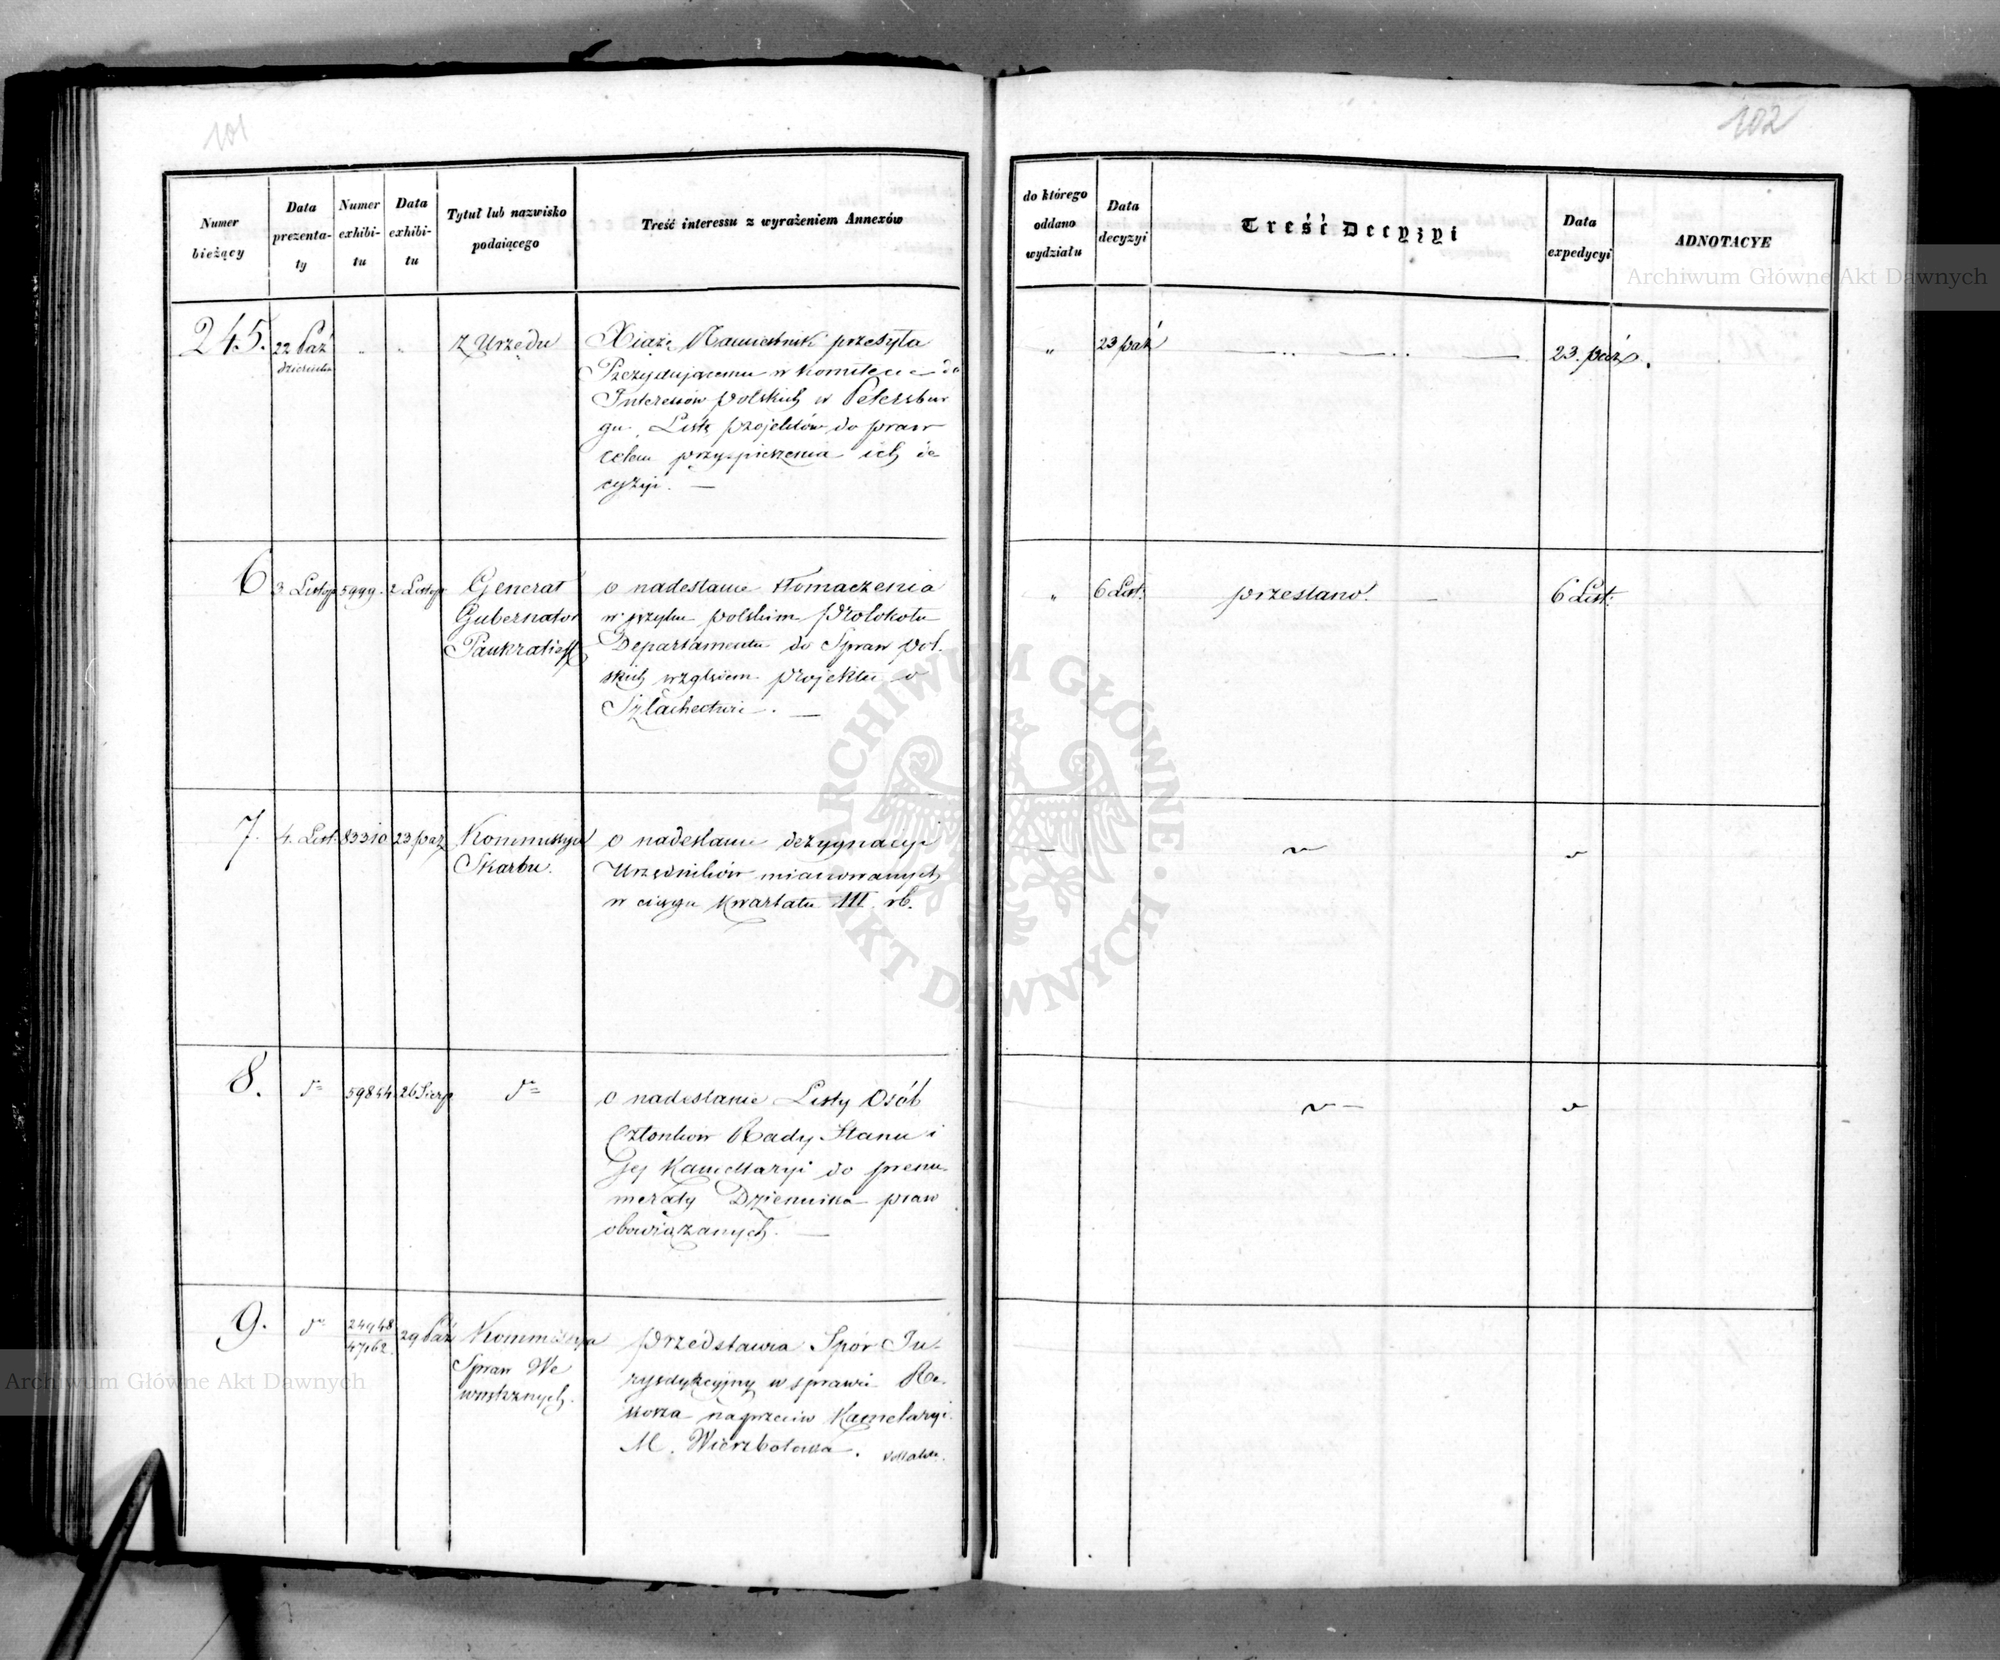 101
102
Numer bieżący
Data prezenta-ty
Numer exhibi-tu
Data exhibi-tu
Tytuł lub nazwisko podaiącego
Treść interessu z wyrażeniem Annexów
do którego oddano wydziału
Data decyzyi
Treść Decyzyi
Data expedycyi
ADNOTACYE
245.
22 Paź
dziernika
„
„
z Urzędu
Xiąże Namiestnik przesyła
Prezydującemu w Komitecie do
Interessów polskich w Petersbur
gu. Listę projektów do praw
celem przyspieszenia ich de
cyzyi. —
„
23 paź
23. paź.
6
3 Listop
5999.
2 Listop
Generał
Gubernator
Pankratieff
o nadesłanie tłomaczenia
w języku polskim Protokołu
Departamentu do Spraw pol-
skich względem projektu o
Szlachectwie. —
„
6 List:
przesłano. —
6 List:
7.
4. List.
83310
23 paź
Kommissya
Skarbu.
o nadesłanie dezygnacyi
Urzędników mianowanych
w ciągu Kwartału III. rb.
—
8.
d°
59854
26 Sierp
d°
o nadesłanie Listy Osób
Członków Rady Stanu i
Jej Kancellaryi do prenu-
meraty Dziennika praw
obowiązanych. —
9.
d°
24948
47162.
29 Paź
Kommissya
Spraw We
wnętrznych.
przedstawia Spór Ju-
rysdykcyjny w sprawie
naprzeciw
M. Wierzbołowa.
Archiwum Główne Akt Dawnych
Archiwum Główne Akt Dawnych
ARCHIWUM GŁÓWNE · AKT DAWNYCH ·